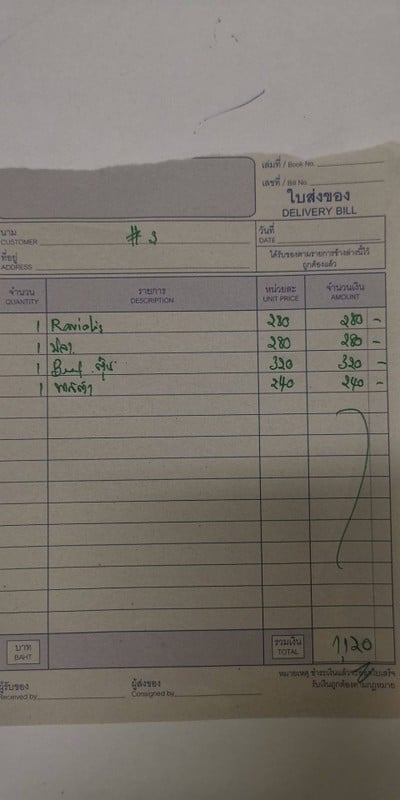 เล่มที่ / Book No.
เลขที่ / Bill No.
ใบส่งของ
DELIVERY BILL
นาม
CUSTOMER # 3
วันที่
DATE
ที่อยู่
ADDRESS
ได้รับของตามรายการข้างล่างนี้ไว้
ถูกต้องแล้ว
จำนวน รายการ หน่วยละ จำนวนเงิน
QUANTITY DESCRIPTION UNIT PRICE AMOUNT
1 Raviolis 280 280 -
1 280 280 -
1 Beef ตุ๋น 320 320 -
1 240 240 -
บาท
BAHT
รวมเงิน
TOTAL
1,120
หมายเหตุ ชำระเงินแล้ว
รับเงินถูกต้องตามกฎหมาย
ผู้รับของ ผู้ส่งของ
Received by Consigned by